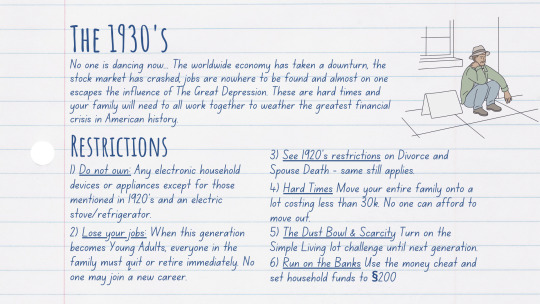 The 1930's
No one is dancing now... The worldwide economy has taken a downturn, the
stock market has crashed, jobs are nowhere to be found and almost on one
escapes the influence of The Great Depression. These are hard times and
your family will need to all work together to weather the greatest financial
crisis in American history.
Restrictions
1) Do not own: Any electronic household
devices or appliances except for those
mentioned in 1920's and an electric
stove/refrigerator.
2) Lose your jobs: When this generation
becomes Young Adults, everyone in the
family must quit or retire immediately. No
one may join a new career.
3) See 1920's restrictions on Divorce and
Spouse Death - same still applies.
4) Hard Times Move your entire family onto a
lot costing less than 30k. No one can afford to
move out.
5) The Dust Bowl & Scarcity Turn on the
Simple Living lot challenge until next generation.
6) Run on the Banks Use the money cheat and
set household funds to §200